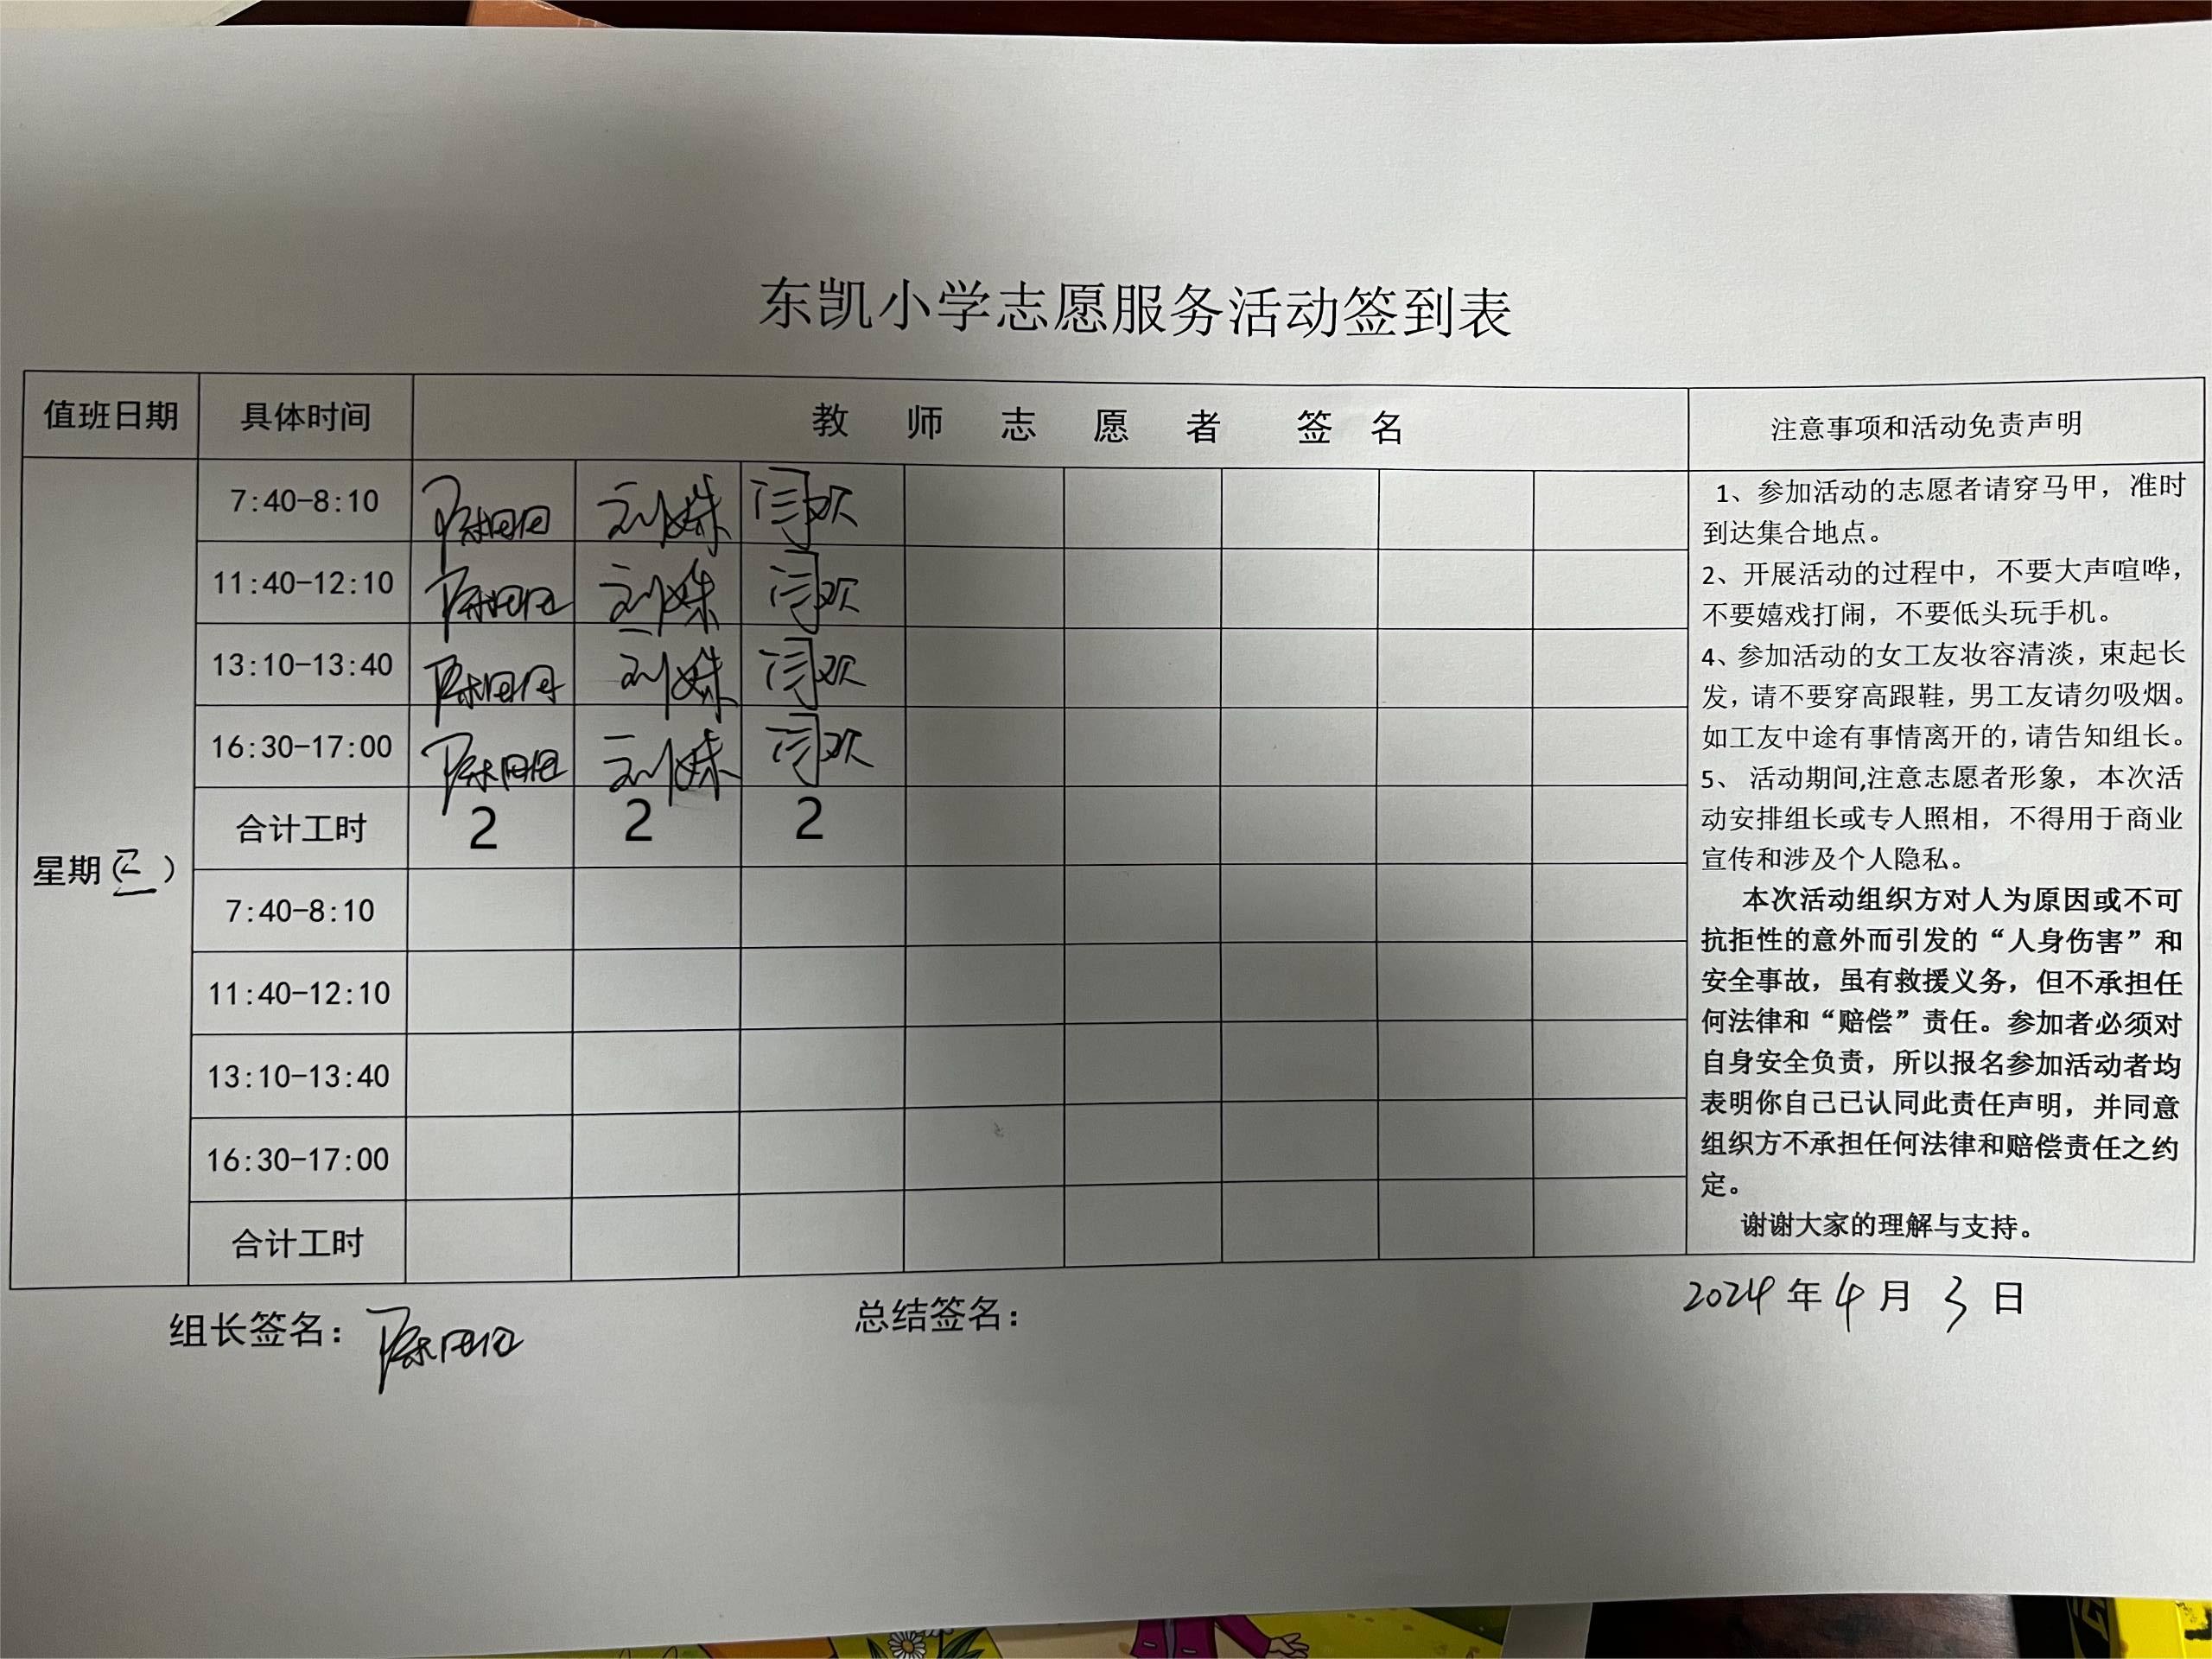 东凯小学志愿服务活动签到表
值班日期 具体时间 教师志愿者 签名 注意事项和活动免责声明
星期( )
7:40-8:10 刘姝 闫欢
11:40-12:10 刘姝 闫欢
13:10-13:40 刘姝 闫欢
16:30-17:00 刘姝 闫欢
合计工时 2 2 2
7:40-8:10
11:40-12:10
13:10-13:40
16:30-17:00
合计工时
1、参加活动的志愿者请穿马甲，准时
到达集合地点。
2、开展活动的过程中，不要大声喧哗，
不要嬉戏打闹，不要低头玩手机。
4、参加活动的女工友妆容清淡，束起长
发，请不要穿高跟鞋，男工友请勿吸烟。
如工友中途有事情离开的，请告知组长。
5、 活动期间,注意志愿者形象，本次活
动安排组长或专人照相，不得用于商业
宣传和涉及个人隐私。
本次活动组织方对人为原因或不可
抗拒性的意外而引发的“人身伤害”和
安全事故，虽有救援义务，但不承担任
何法律和“赔偿”责任。参加者必须对
自身安全负责，所以报名参加活动者均
表明你自己已认同此责任声明，并同意
组织方不承担任何法律和赔偿责任之约
定。
谢谢大家的理解与支持。
组长签名： 总结签名： 2024年4月3日